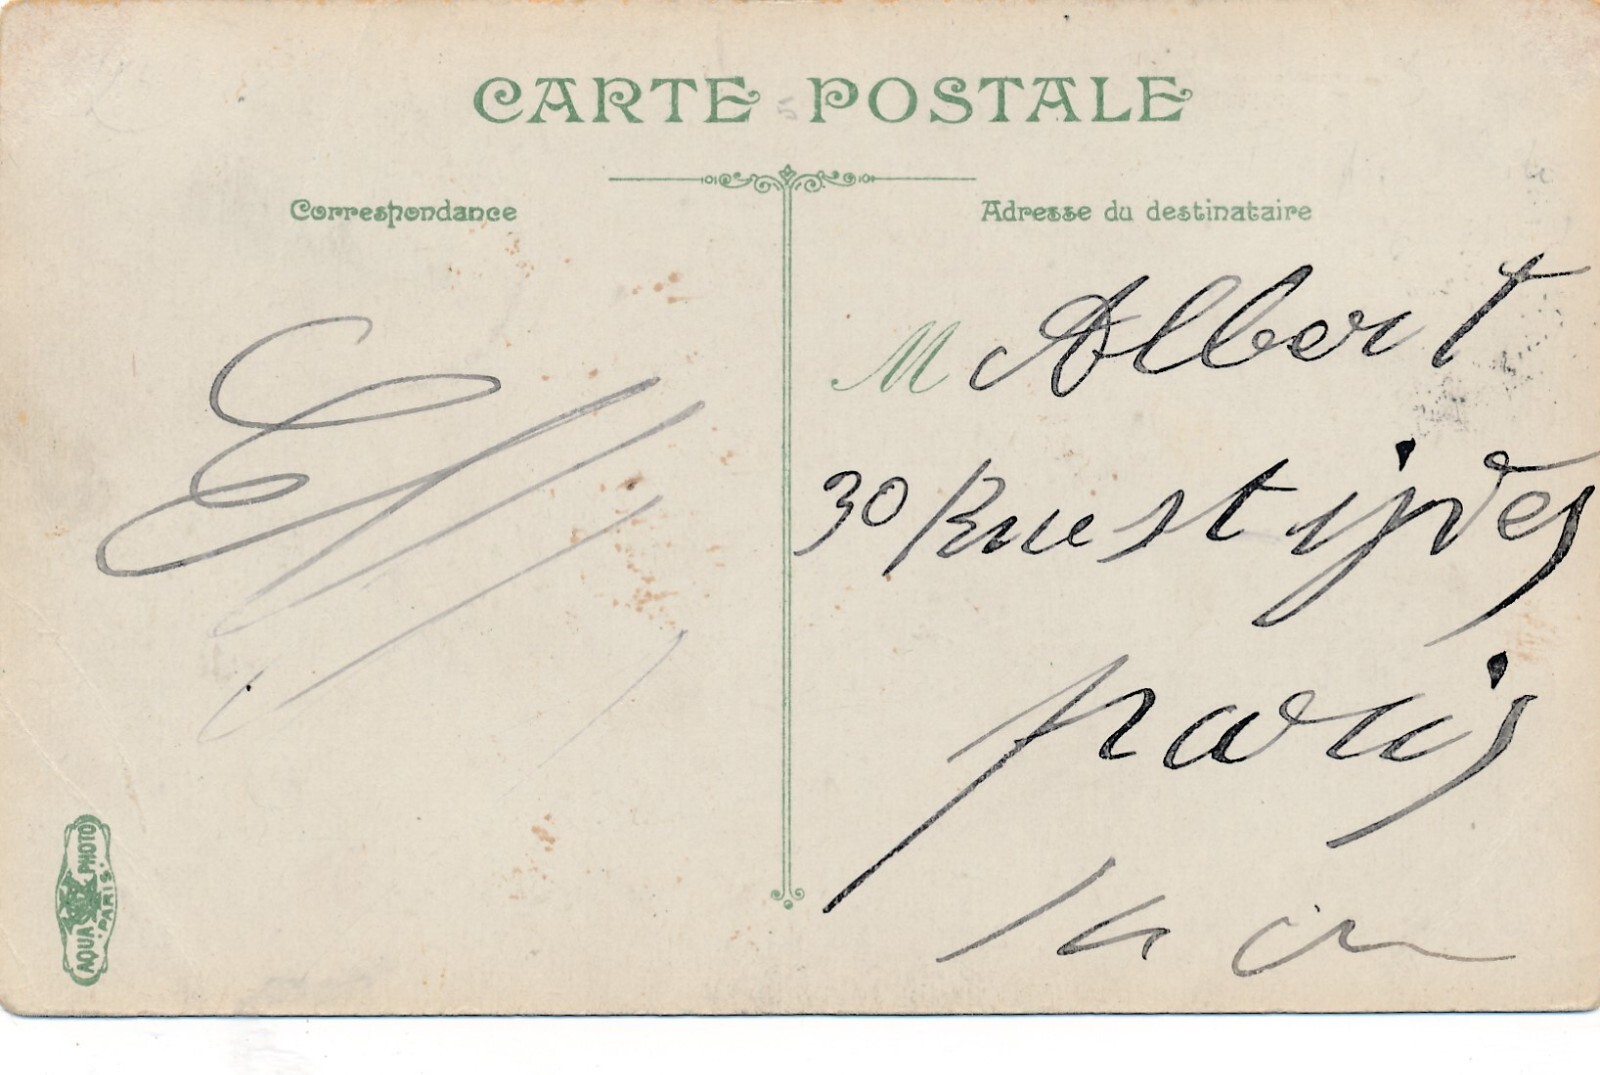 CARTE POSTALE
Correspondance
Adresse du destinataire
M Albert
30 Rue st yves
paris
14
AQUA PHOTO PARIS